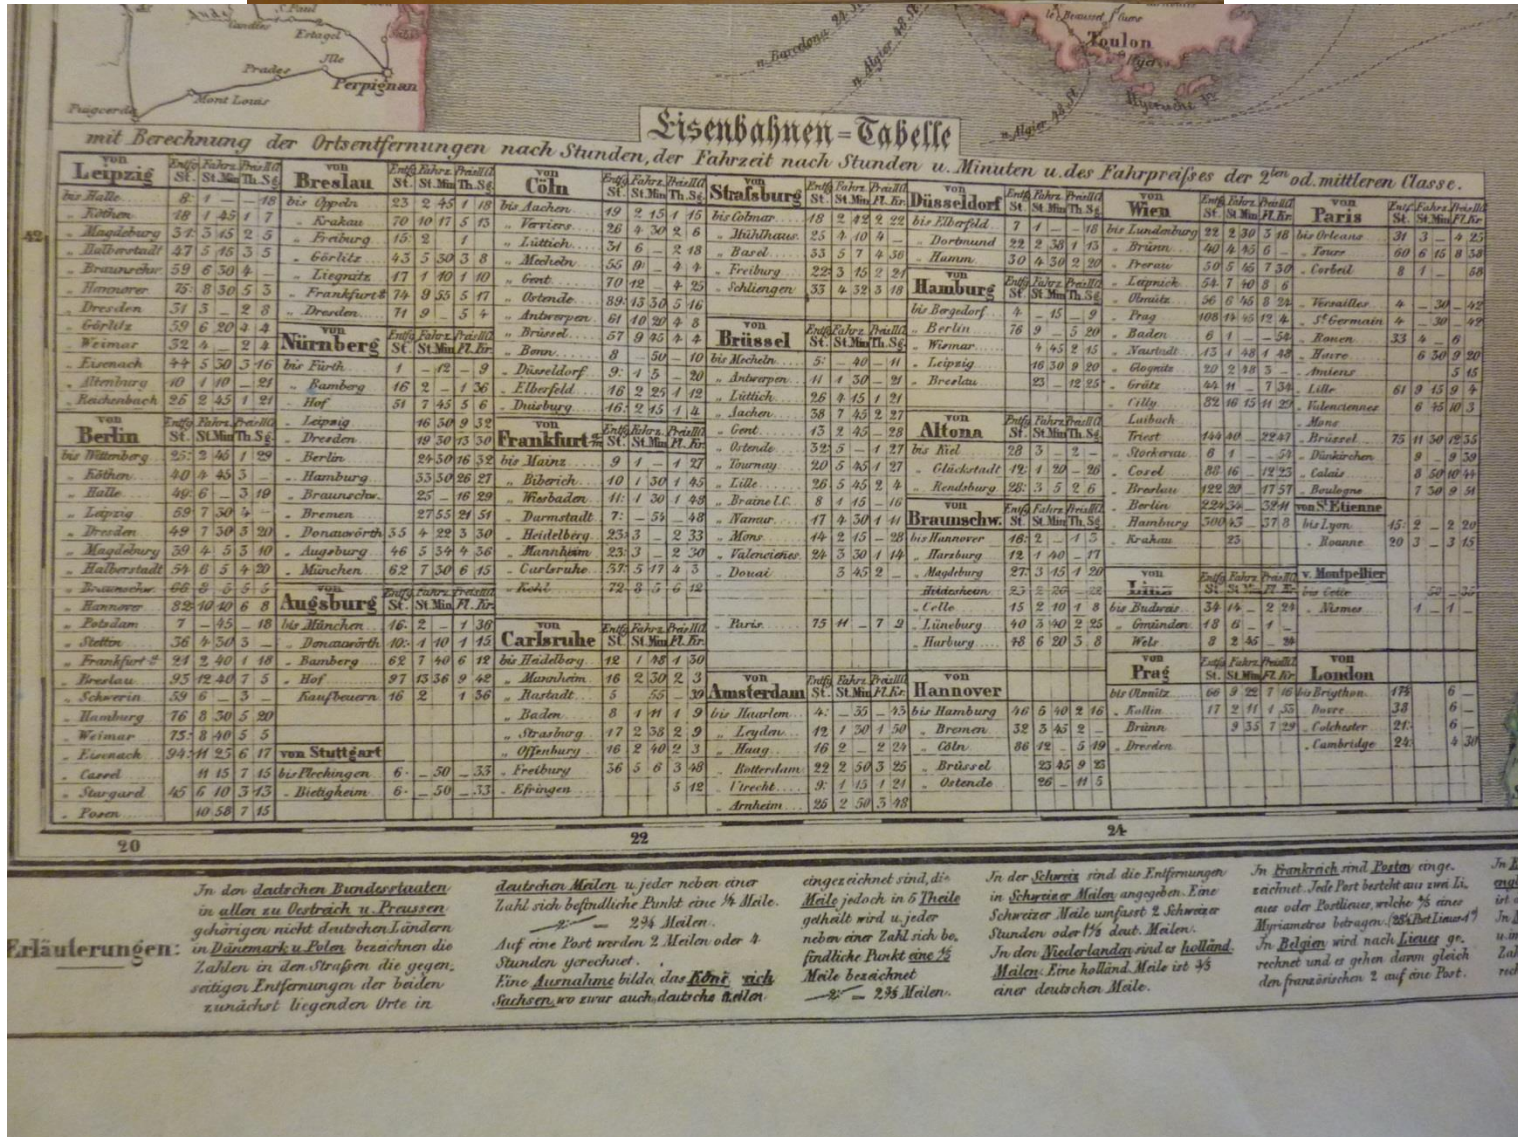 S. Paul
Estagel
Ille
Prades
Perpignan
Mont Louis
Puigcerda
n. Barcelona 24 St.
n. Algier 48 St.
n. Algier 48 St.
le Beausset
Toulon
Hyerische In.
Eisenbahnen=Tabelle
mit Berechnung der Ortsentfernungen nach Stunden, der Fahrzeit nach Stunden u. Minuten u. des Fahrpreifses der 2ten od. mittleren Classe.
42
von Leipzig Entfg. St. Fahrz. St. Min Preis II Cl. Th. Sg.
bis Halle 8· 1 — — 18
„ Köthen 18 1 45 1 7
„ Magdeburg 31· 3 15 2 5
„ Halberstadt 47 5 15 3 5
„ Braunschw. 59 6 30 4 —
„ Hannover 75· 8 30 5 3
„ Dresden 31 3 — 2 8
„ Görlitz 59 6 20 4 4
„ Weimar 32 4 — 2 4
„ Eisenach 44 5 30 3 16
„ Altenburg 10 1 10 — 21
„ Reichenbach 26 2 45 1 21
von Berlin Entfg. St. Fahrz. St. Min Preis II Cl. Th. Sg.
bis Wittenberg 25· 2 45 1 29
„ Köthen 40 4 45 3 —
„ Halle 49· 6 — 3 19
„ Leipzig 59 7 30 4 —
„ Dresden 49 7 30 3 20
„ Magdeburg 39 4 5 3 10
„ Halberstadt 54 6 5 4 20
„ Braunschw. 66 8 5 5 5
„ Hannover 82· 10 10 6 8
„ Potsdam 7 — 45 — 18
„ Stettin 36 4 30 3 —
„ Frankfurt 21 2 40 1 18
„ Breslau 93 12 40 7 5
„ Schwerin 59 6 — 3 —
„ Hamburg 76 8 30 5 20
„ Weimar 75· 8 40 5 5
„ Eisenach 94· 11 25 6 17
„ Cassel 11 15 7 15
„ Stargard 45 6 10 3 13
„ Posen 10 58 7 15
von Breslau Entfg. St. Fahrz. St. Min Preis II Cl. Th. Sg.
bis Oppeln 23 2 45 1 18
„ Krakau 70 10 17 5 13
„ Freiburg 15· 2 1
„ Görlitz 43 5 30 3 8
„ Liegnitz 17 1 10 1 10
„ Frankfurt 74 9 55 5 17
„ Dresden 71 9 — 5 4
von Nürnberg Entfg. St. Fahrz. St. Min Preis II Cl. Fl. Kr.
bis Fürth 1 — 12 — 9
„ Bamberg 16 2 — 1 36
„ Hof 51 7 45 5 6
„ Leipzig 16 30 9 32
„ Dresden 19 30 13 30
„ Berlin 24 30 16 32
„ Hamburg 33 30 26 27
„ Braunschw. 25 — 16 29
„ Bremen 27 55 21 51
„ Donauwörth 35 4 22 3 30
„ Augsburg 46 5 34 4 36
„ München 62 7 30 6 15
von Augsburg Entfg. St. Fahrz. St. Min Preis II Cl. Fl. Kr.
bis München 16· 2 — 1 36
„ Donauwörth 10· 1 10 1 15
„ Bamberg 62 7 40 6 12
„ Hof 97 13 36 9 42
„ Kaufbeuern 16 2 1 36
von Stuttgart
bis Plochingen 6· — 50 — 33
„ Bietigheim 6· — 50 — 33
von Cöln Entfg. St. Fahrz. St. Min Preis II Cl. Th. Sg.
bis Aachen 19 2 15 1 15
„ Verviers 26 4 30 2 6
„ Lüttich 31 6 — 2 18
„ Mecheln 55 9· — 4 4
„ Gent 70 12 — 4 25
„ Ostende 89· 13 30 5 16
„ Antwerpen 61 10 20 4 8
„ Brüssel 57 9 45 4 4
„ Bonn 8 — 50 — 10
„ Düsseldorf 9· 1 5 — 20
„ Elberfeld 16 2 25 1 12
„ Duisburg 16· 2 15 1 4
von Frankfurt Entfg. St. Fahrz. St. Min Preis II Cl. Fl. Kr.
bis Mainz 9 1 — 1 27
„ Biberich 10 1 30 1 45
„ Wiesbaden 11· 1 30 1 48
„ Darmstadt 7· — 54 — 48
„ Heidelberg 23· 3 — 2 33
„ Mannheim 23· 3 — 2 30
„ Carlsruhe 37· 5 17 4 3
„ Kehl 72 8 5 6 12
von Carlsruhe Entfg. St. Fahrz. St. Min Preis II Cl. Fl. Kr.
bis Heidelberg 12 1 48 1 30
„ Mannheim 16 2 30 2 3
„ Rastadt 5 55 — 39
„ Baden 8 1 11 1 9
„ Strasburg 17 2 38 2 9
„ Offenburg 16 2 40 2 3
„ Freiburg 36 5 6 3 48
„ Efringen 5 12
von Strafsburg Entfg. St. Fahrz. St. Min Preis II Cl. Fl. Kr.
bis Colmar 18 2 42 2 22
„ Mühlhaus. 25 4 10 4 —
„ Basel 33 5 7 4 36
„ Freiburg 22· 3 15 2 21
„ Schliengen 33 4 32 3 18
von Brüssel Entfg. St. Fahrz. St. Min Preis II Cl. Th. Sg.
bis Mecheln 5· — 40 — 11
„ Antwerpen 11 1 30 — 21
„ Lüttich 26 4 15 1 21
„ Aachen 38 7 45 2 27
„ Gent 13 2 45 — 28
„ Ostende 32· 5 — 1 27
„ Tournay 20 5 45 1 27
„ Lille 26 5 45 2 4
„ Braine l.C. 8 1 15 — 16
„ Namur 17 4 30 1 11
„ Mons 14 2 15 — 28
„ Valencienes 24 3 30 1 14
„ Douai 3 45 2 —
„ Paris 75 11 — 7 9
von Amsterdam Entfg. St. Fahrz. St. Min Preis II Cl. Fl. Kr.
bis Haarlem 4· — 35 — 43
„ Leyden 12 1 30 1 50
„ Haag 16 2 — 2 24
„ Rotterdam 22 2 50 3 25
„ Utrecht 9· 1 15 1 21
„ Arnheim 25 2 50 3 48
von Düsseldorf Entfg. St. Fahrz. St. Min Preis II Cl. Th. Sg.
bis Elberfeld 7 1 — — 18
„ Dortmund 22 2 38 1 13
„ Hamm 30 4 30 2 20
von Hamburg Entfg. St. Fahrz. St. Min Preis II Cl. Th. Sg.
bis Bergedorf 4 — 15 — 9
„ Berlin 76 9 — 5 20
„ Wismar 4 45 2 15
„ Leipzig 16 30 9 20
„ Breslau 23 — 12 25
von Altona Entfg. St. Fahrz. St. Min Preis II Cl. Th. Sg.
bis Kiel 28 3 — 2 —
„ Glückstadt 12· 1 20 — 26
„ Rendsburg 28· 3 5 2 6
von Braunschw. Entfg. St. Fahrz. St. Min Preis II Cl. Th. Sg.
bis Hannover 16· 2 — 1 3
„ Harzburg 12 1 40 — 17
„ Magdeburg 27· 3 15 1 20
Hildesheim 23 2 26 — 22
„ Celle 15 2 10 1 8
„ Lüneburg 40 3 40 2 25
„ Harburg 48 6 20 3 8
von Hannover
bis Hamburg 46 5 40 2 16
„ Bremen 32 3 45 2 —
„ Cöln 86 12 — 5 19
„ Brüssel 23 45 9 23
„ Ostende 26 — 11 5
von Wien Entfg. St. Fahrz. St. Min Preis II Cl. Fl. Kr.
bis Lundenburg 22 2 30 3 18
„ Brünn 40 4 45 6 —
„ Prerau 50 5 45 7 30
„ Leipnick 54 7 40 8 6
„ Olmütz 56 6 45 8 24
„ Prag 108 14 45 12 4
„ Baden 6 1 — — 54
„ Neustadt 13 1 48 1 48
„ Glognitz 20 2 48 3 —
„ Grätz 44 11 — 7 34
„ Cilly 82 16 15 11 29
Laibach
Triest 144 40 — 22 47
„ Stockerau 6 1 — — 54
„ Cosel 88 16 — 12 23
„ Breslau 122 20 17 57
„ Berlin 224 34 — 32 11
„ Hamburg 300 43 — 37 8
„ Krakau 23
von Linz Entfg. St. Fahrz. St. Min Preis II Cl. Fl. Kr.
bis Budweis 34 14 — 2 24
„ Gmünden 18 6 — 1 —
Wels 8 2 45 — 24
von Prag Entfg. St. Fahrz. St. Min Preis II Cl. Fl. Kr.
bis Olmütz 66 9 22 7 16
„ Kollin 17 2 11 1 53
Brünn 9 35 7 29
„ Dresden
von Paris Entfg. St. Fahrz. St. Min Preis II Cl. Fl. Kr.
bis Orleans 31 3 — 4 25
„ Tours 60 6 15 8 38
„ Corbeil 8 1 — 58
„ Versailles 4 — 30 — 42
„ St Germain 4 — 30 — 42
„ Rouen 33 4 — 6
„ Havre 6 30 9 20
„ Amiens 5 15
„ Lille 61 9 15 9 4
„ Valenciennes 6 45 10 3
„ Mons
„ Brüssel 75 11 30 12 35
„ Dünkirchen 9 — 9 39
„ Calais 8 50 10 44
„ Boulogne 7 30 9 51
von St Etienne
bis Lyon 15· 2 — 2 20
„ Roanne 20 3 — 3 15
v. Montpellier
bis Cette 50 — 35
„ Nismes 1 — 1 —
von London
bis Brigthon 17½ 6 —
„ Dovre 38 6 —
„ Colchester 21· 6 —
„ Cambridge 24· 4 30
20 22 24
Erläuterungen:
In den deutschen Bundesstaaten
in allen zu Oestreich u. Preussen
gehörigen nicht deutschen Ländern
in Dänemark u. Polen bezeichnen die
Zahlen in den Strafsen die gegen-
seitigen Entfernungen der beiden
zunächst liegenden Orte in
deutschen Meilen u. jeder neben einer
Zahl sich befindliche Punkt eine ¼ Meile.
2·· — 2¾ Meilen.
Auf eine Post werden 2 Meilen oder 4
Stunden gerechnet.
Eine Ausnahme bildet das
Sachsen, wo zwar auch deutsche Meilen
eingezeichnet sind, die
Meile jedoch in 5 Theile
getheilt wird u. jeder
neben einer Zahl sich be-
findliche Punkt eine ⅕
Meile bezeichnet
— 2⅗ Meilen.
In der Schweiz sind die Entfernungen
in Schweizer Meilen angegeben. Eine
Schweizer Meile umfasst 2 Schweizer
Stunden oder 1⅕ deut. Meilen.
In den Niederlanden sind es holländ.
Meilen. Eine holländ. Meile ist ⅘
einer deutschen Meile.
In Frankreich sind Posten einge-
zeichnet. Jede Post besteht aus zwei Li-
eues oder Postlieues, welche ⅘ eines
Myriametres betragen.
In Belgien wird nach Lieues ge-
rechnet und es gehen davon gleich
den französischen 2 auf eine Post.